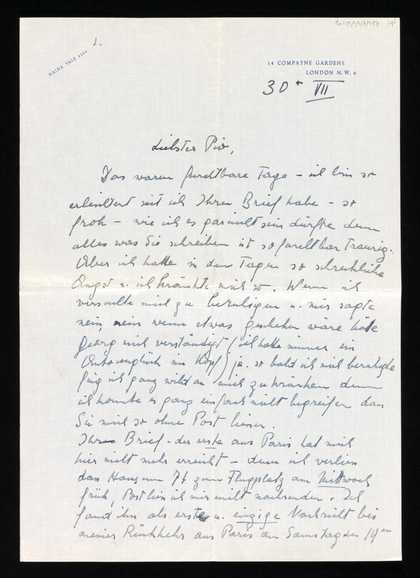 1.
MAIDA VALE
14 COMPAYNE GARDENS
LONDON N.W. 6
30 VII
Liebster Piv,
Das waren furchtbare Tage – ich bin so
erleichtert seit ich Ihren Brief habe – so
froh – wie ich es gar nicht sein dürfte denn
alles was Sie schreiben ist so furchtbar traurig.
Aber ich hatte in den Tagen so schreckliche
Angst u. ich kränkte mich so. Wenn ich
versuchte mich zu beruhigen u. mir sagte
nein, nein wenn etwas geschehen wäre hätte
Georg mich verständigt (ich hatte immer ein
im Kopf) ja, so bald ich mich beruhigte
fing ich ganz wild an mich zu kränken denn
ich konnte es ganz einfach nicht begreifen dass
Sie mich so ohne Post liessen.
Ihren Brief – der erste aus Paris hat mich
hier nicht mehr erreicht – denn ich verliess
das Haus um 7h zum Flugplatz am Mittwoch
früh, Post liess ich mir nicht nachsenden. Ich
fand ihn als erste u. einzige Nachricht bei
meiner Rückkehr aus Paris am Samstag den 19ten